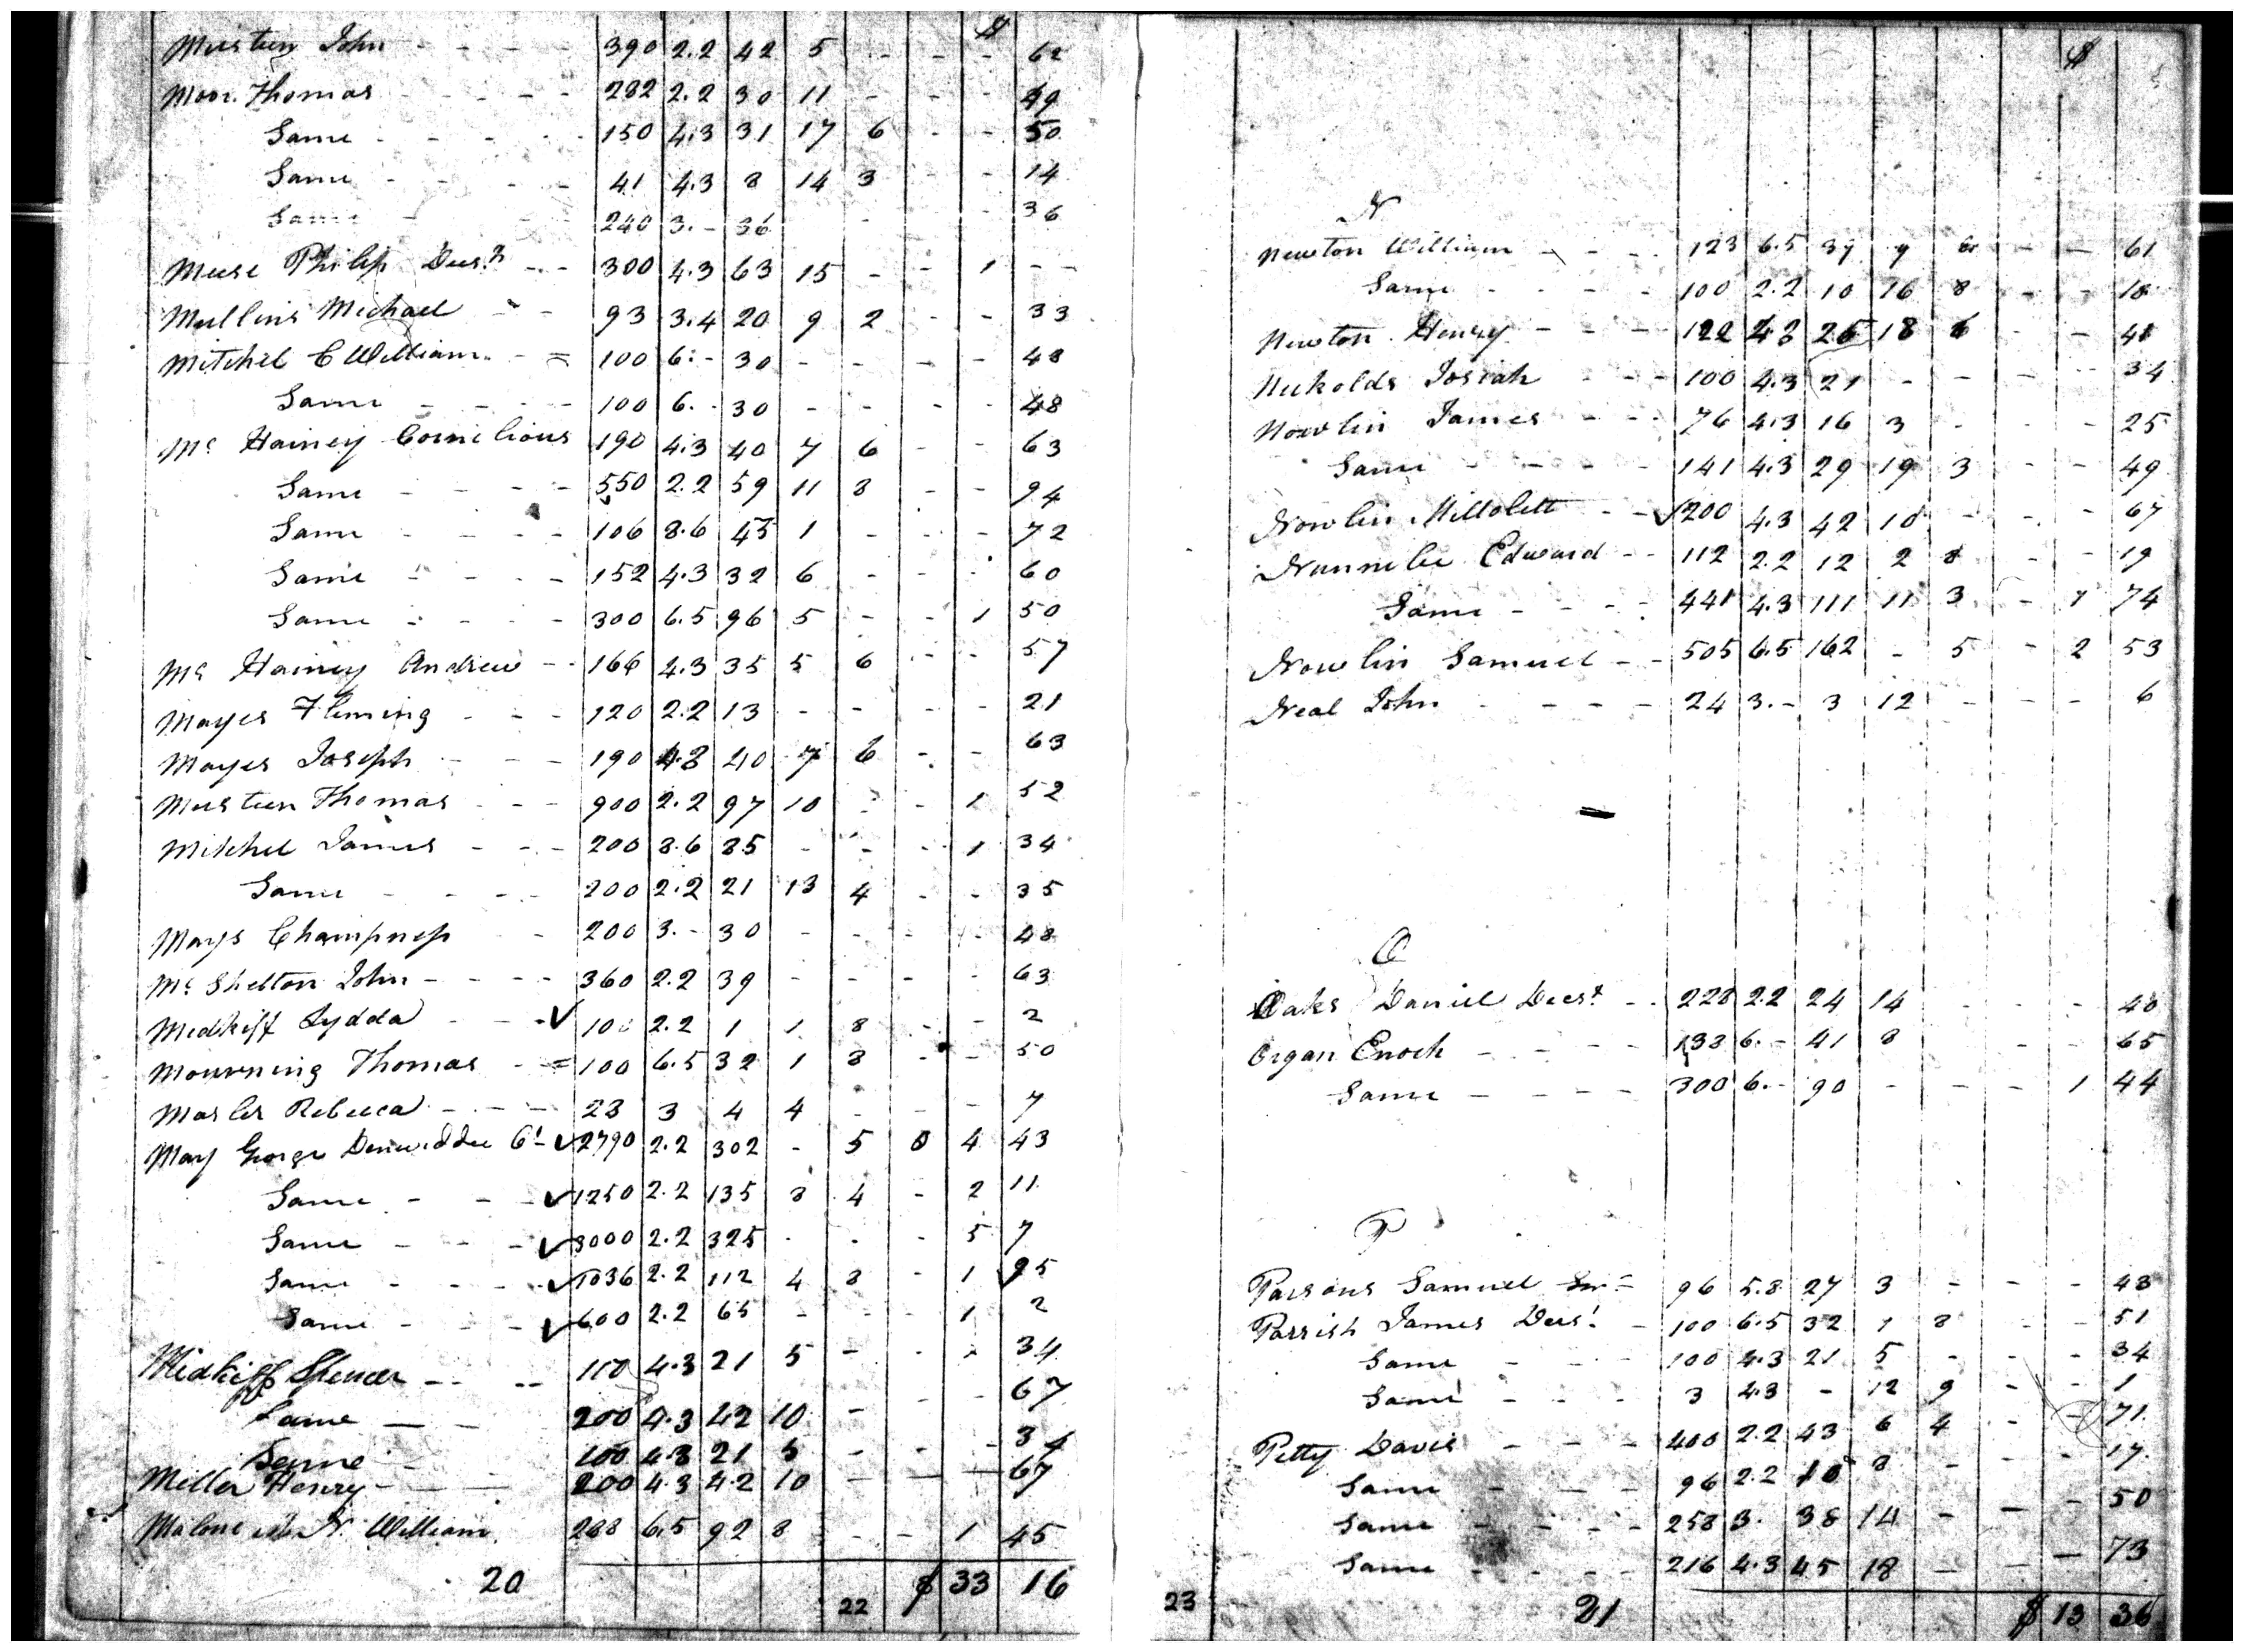 $
Musteen John - - - - 390 2.2 42 5 - - - 62
Moor Thomas - - - - - 282 2.2 30 11 - - - 49
Same - - - - - 150 4.3 31 17 6 - - 50
Same - - - - - 41 4.3 8 14 3 - - 14
Same - - 240 3. - 36 - - 36
Muse Philip Decs.d - - 300 4.3 63 15 - - 1 - -
Mullins Michael - - 93 3.4 20 9 2 - - 33
Mitchel C William - = 100 6. - 30 - - - - 48
Same - - - - 100 6. - 30 - - - - 48
Mc Hainey Cornelious 190 4.3 40 7 6 - - 63
Same - - - - 550 2.2 59 11 8 - - 94
Same - - - - 106 8.6 45 1 - - - 72
Same - - - - 152 4.3 32 6 - - - 60
Same - - - - 300 6.5 96 5 - - 1 50
Mc Hainey Andrew - - 166 4.3 35 5 6 - - 57
Mayes Fleming - - - 120 2.2 13 - - - - 21
Mayes Joseph - - - 190 4.3 40 7 6 - - 63
Musteen Thomas - - - 900 2.2 97 10 - - 1 52
Mitchel James - - - 200 8.6 85 - - - 1 34
Same - - - - 200 2.2 21 13 4 - - 35
Mays Champness - - 200 3. - 30 - - - - 48
Mc Shelton John - - - - 360 2.2 39 - - - - 63
Midkiff Lydda - - - ✓ 10 2.2 1 1 8 - - 2
Mourning Thomas - = 100 6.5 32 1 8 - - 50
Rebecca - - - 28 3 4 4 - - - 7
May George Denwiddee ✓ 2790 2.2 302 - 5 0 4 43
Same - - - ✓ 1250 2.2 135 8 4 - 2 11
Same - - - ✓ 3000 2.2 325 - - - 5 7
Same - - - ✓ 1036 2.2 112 4 8 - 1 ✓ 95
Same - - - ✓ 600 2.2 65 - - - 1 2
Midkiff Spencer - - - - 100 4.3 21 5 - - - 34
Same - - 200 4.3 42 10 - - - 67
Same - 100 4.3 21 5 - - - 34
Miller Henry - - - 200 4.3 42 10 - - - 67
Malone William 288 6.5 92 8 - - 1 45
20 $ 33 16
22
$
N
Newton William - - - 123 6.5 39 9 6 - - 61
Same - - - - 100 2.2 10 16 8 - - 18
Newton Henry - - - - 122 4.3 25 18 6 - - 41
Nuckolds Josiah - - - 100 4.3 21 - - - - 34
Nowlin James - - - 76 4.3 16 3 - - - 25
Same - - - - 141 4.3 29 19 3 - - 49
Nowlin - - ✓ 200 4.3 42 10 - - - 67
Nunnelee Edward - - 112 2.2 12 2 8 - - 19
Same - - - - 441 4.3 111 11 3 - 1 74
Nowlin Samuel - - 505 6.5 162 - 5 - 2 53
Neal John - - - - 24 3. - 3 12 - - - 6
O
Oaks Daniel Decs.d - - 228 2.2 24 14 - - - 40
Organ Enoch - - - - 138 6. - 41 8 - - 65
Same - - - - 300 6. - 90 - - - 1 44
P
Parsons Samuel - 96 5.8 27 3 - - - 43
Parrish James Decs.d - 100 6.5 32 1 8 - - 51
Same - - - 100 4.3 21 5 - - - 34
Same - - - 3 4.3 - 12 9 - - 1
Petty Davis - - - 400 2.2 43 6 4 - - 71
Same - - - 96 2.2 10 8 - - - 17
Same - - - - 258 3. 38 14 - - - 50
Same - - - - 216 4.3 45 18 - - - 73
23
21 $ 13 36